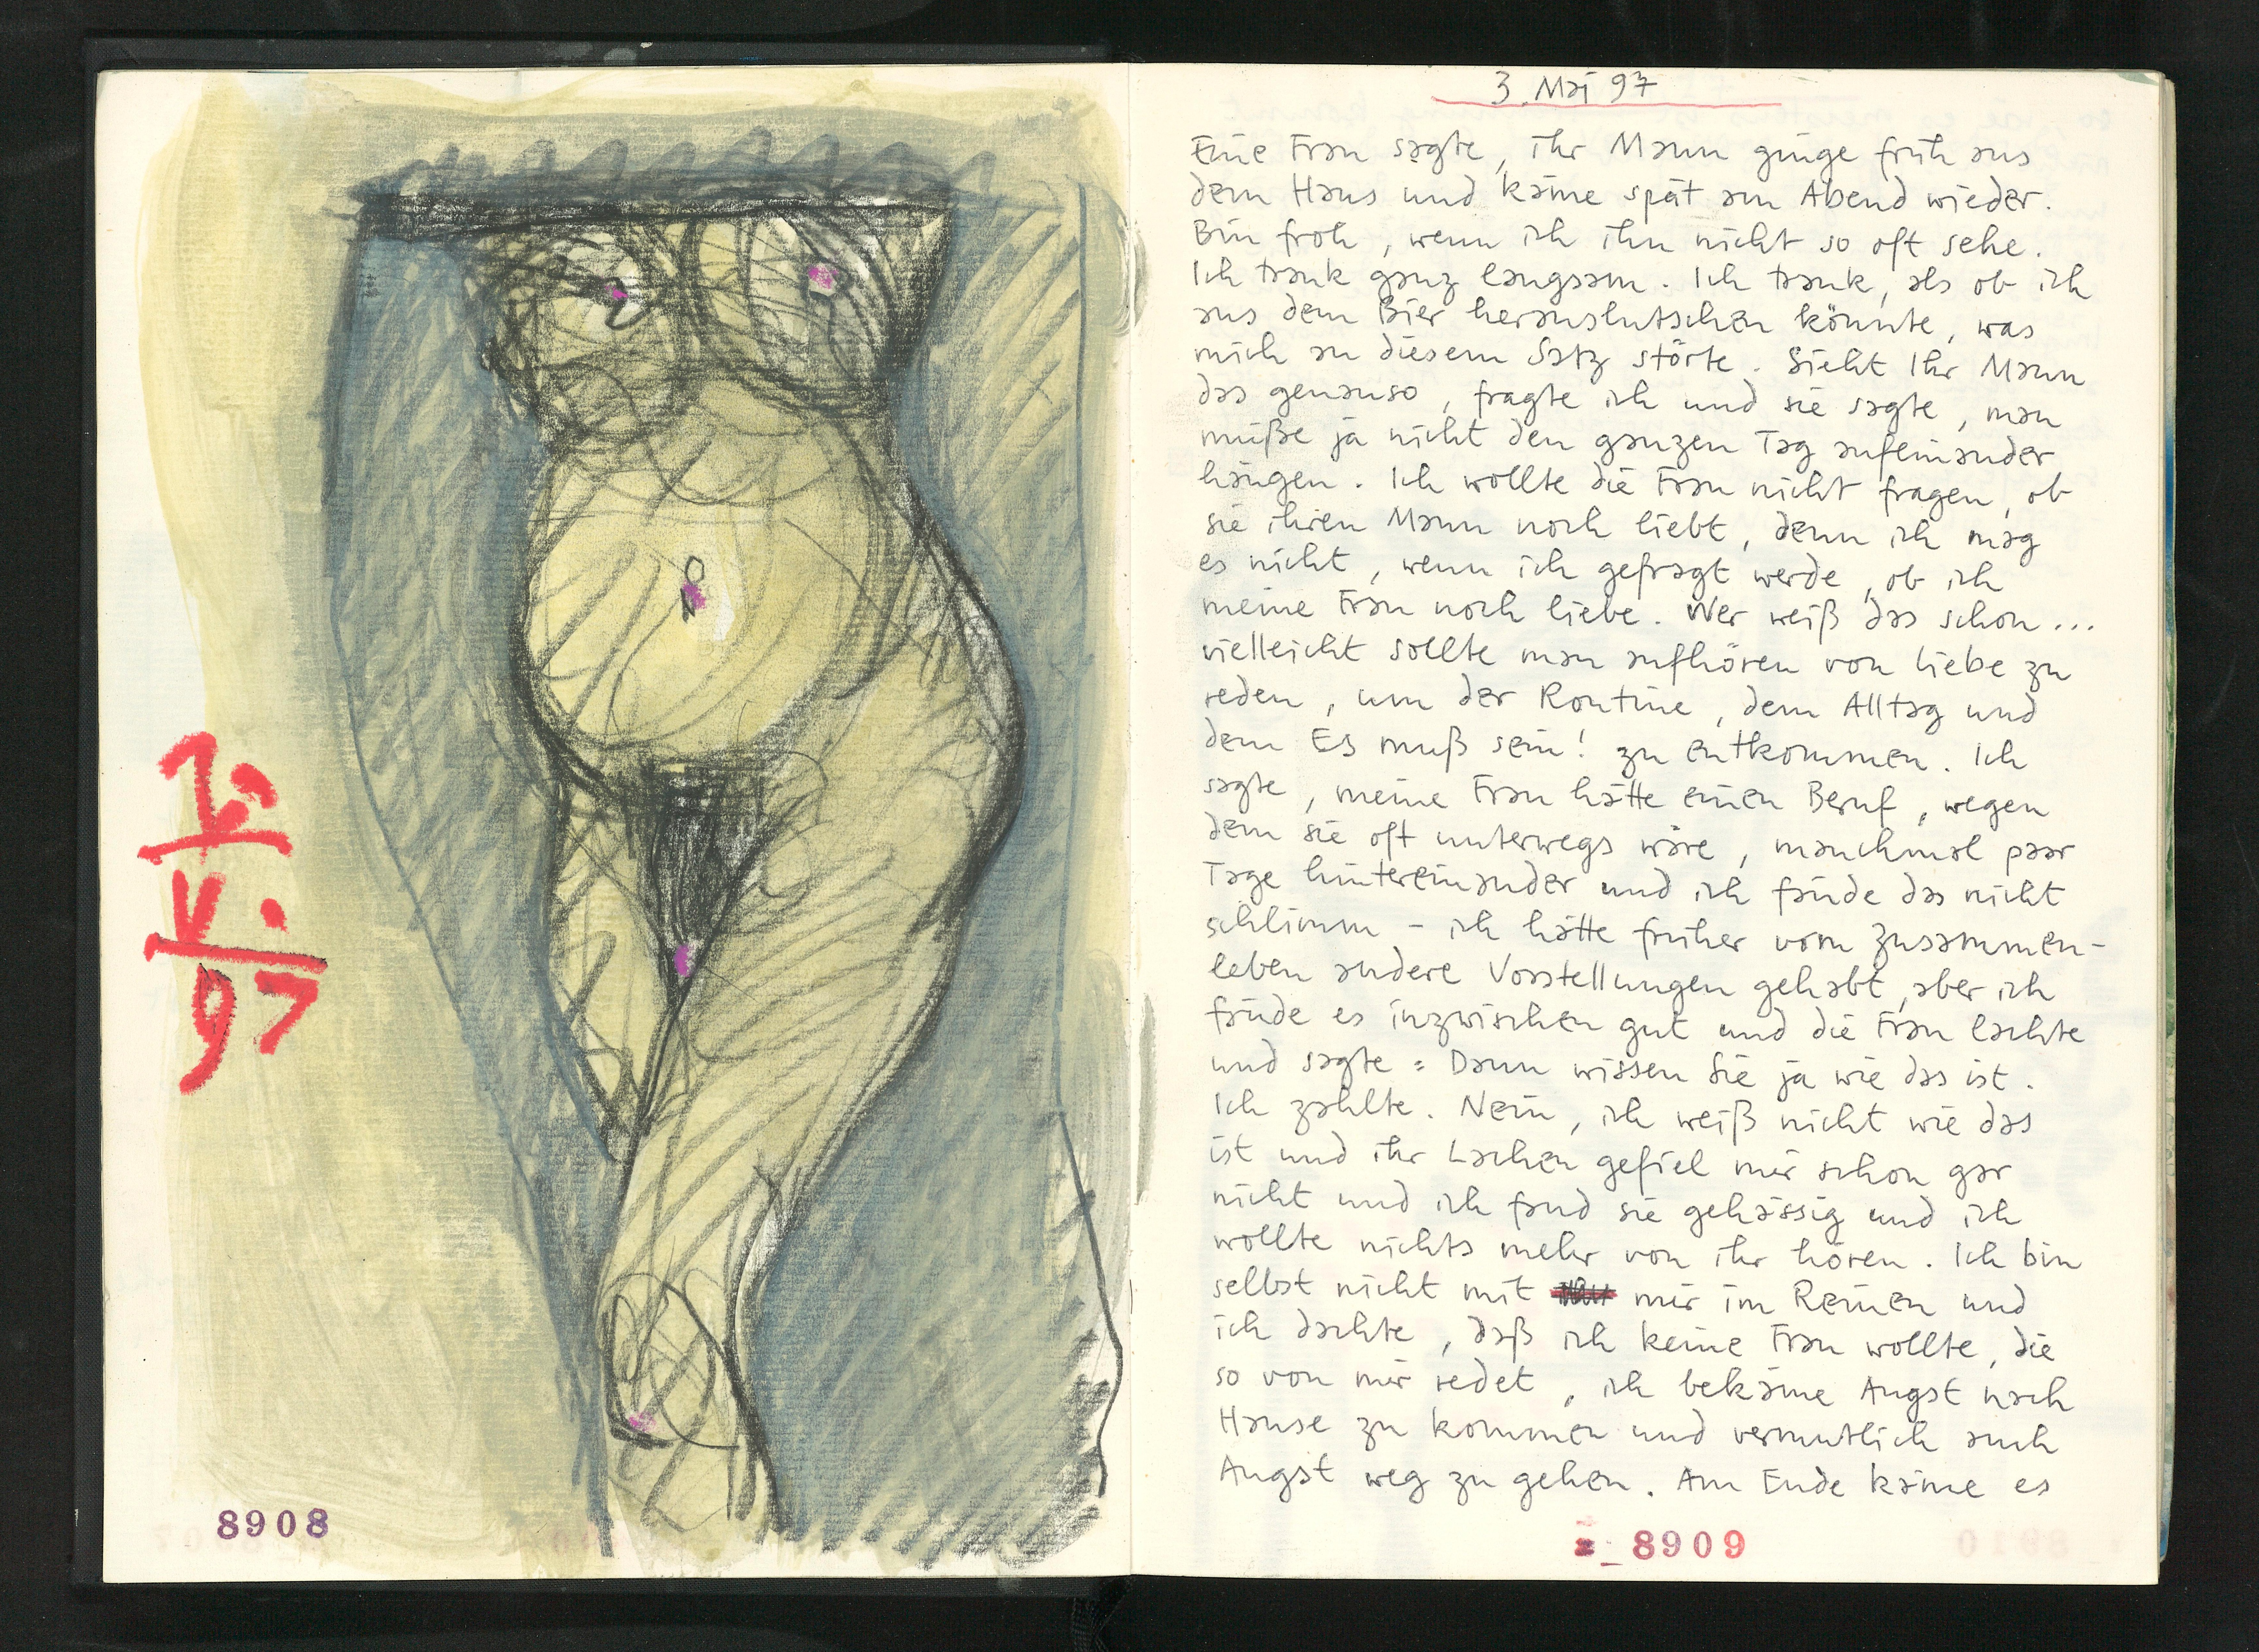 2.
V.
97
8908
3. Mai 97
Eine Frau sagte, ihr Mann ginge früh aus
dem Haus und käme spät am Abend wieder.
Bin froh, wenn ich ihn nicht so oft sehe.
Ich trank ganz langsam. Ich trank, als ob ich
aus dem Bier herauslutschen könnte, was
mich an diesem Satz störte. Sieht Ihr Mann
das genauso, fragte ich und sie sagte, man
müße ja nicht den ganzen Tag aufeinander
hängen. Ich wollte die Frau nicht fragen, ob
sie ihren Mann noch liebt, denn ich mag
es nicht, wenn ich gefragt werde, ob ich
meine Frau noch liebe. Wer weiß das schon...
vielleicht sollte man aufhören von Liebe zu
reden, um der Routine, dem Alltag und
dem Es muß sein! zu entkommen. Ich
sagte, meine Frau hätte einen Beruf, wegen
dem sie oft unterwegs wäre, manchmal paar
Tage hintereinander und ich fände das nicht
schlimm – ich hätte früher vom Zusammen-
leben andere Vorstellungen gehabt, aber ich
fände es inzwischen gut und die Frau lachte
und sagte: Dann wissen Sie ja wie das ist.
Ich zahlte. Nein, ich weiß nicht wie das
ist und ihr Lachen gefiel mir schon gar
nicht und ich fand sie gehässig und ich
wollte nichts mehr von ihr hören. Ich bin
selbst nicht mit mir im Reinen und
ich dachte, daß ich keine Frau wollte, die
so von mir redet, ich bekäme Angst nach
Hause zu kommen und vermutlich auch
Angst weg zu gehen. Am Ende käme es
8909